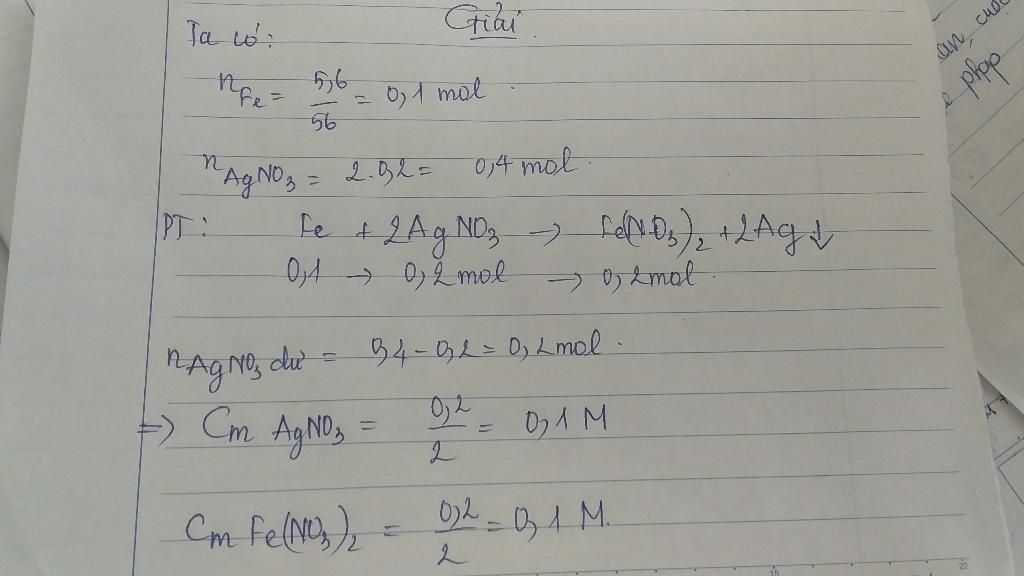 Giải
Ta có:
nFe = 5,6/56 = 0,1 mol
nAgNO3 = 2.0,2 = 0,4 mol.
PT: Fe + 2AgNO3 → Fe(NO3)2 + 2Ag↓
0,1 → 0,2mol → 0,2mol.
nAgNO3 dư = 0,4 - 0,2 = 0,2mol.
=> Cm AgNO3 = 0,2/2 = 0,1 M
Cm Fe(NO3)2 = 0,2/2 = 0,1 M.
php
15 20